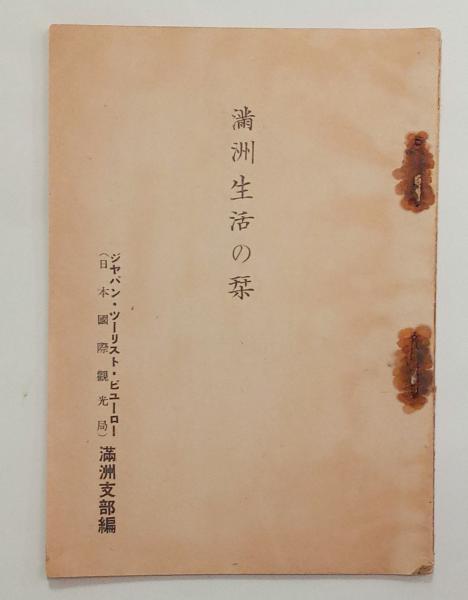 滿洲生活の栞
ジヤパン・ツーリスト・ビユーロー
（日本國際觀光局）
滿洲支部編